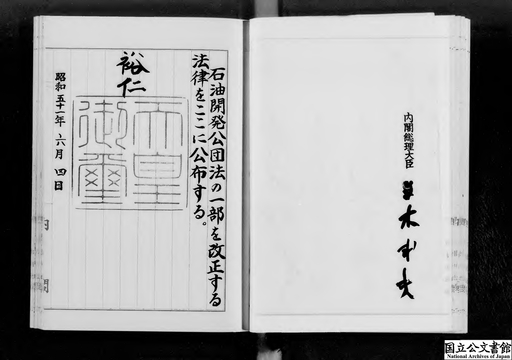 内閣総理大臣
三木武夫
石油開発公団法の一部を改正する
法律をここに公布する。
裕仁
天皇
御璽
昭和五十一年 六月 四日
内 閣
国立公文書館
National Archives of Japan